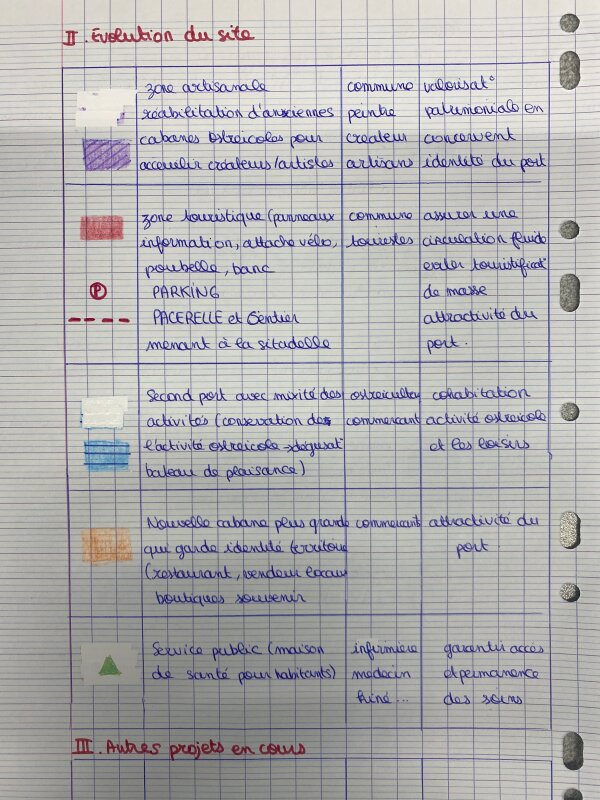 II. Évolution du site
zone artisanale
réabilitation d'ansciennes
cabanes ostreicoles pour
accueulir créateurs/artistes
commune
peintre
createur
artisans
valorisat°
patrimoniale en
concervent
identité du port
zone touristique (panneaux
information, attache vélo,
poubelle, banc
P
PARKING
PACERELLE et Sentier
menant à la sitadelle
commune
touristes
assurer une
circulation fluide
eviter touristificat°
de masse
attractivité du
port.
Second port avec mixité des
activités (conservation de
l'activité ostreicole → dégusat°
bateau de plaisance)
ostreiculteur
commercant
cohabitation
activité ostreicole
et les loisirs
Nouvelle cabane plus grande
qui garde identité territoire
(restaurant, vendeur locaux
boutiques souvenir
commercant
attractivité du
port.
Service public (maison
de santé pour habitants)
infirmiere
medecin
kiné...
garantir accès
et permanence
des soins
III. Autres projets en cours